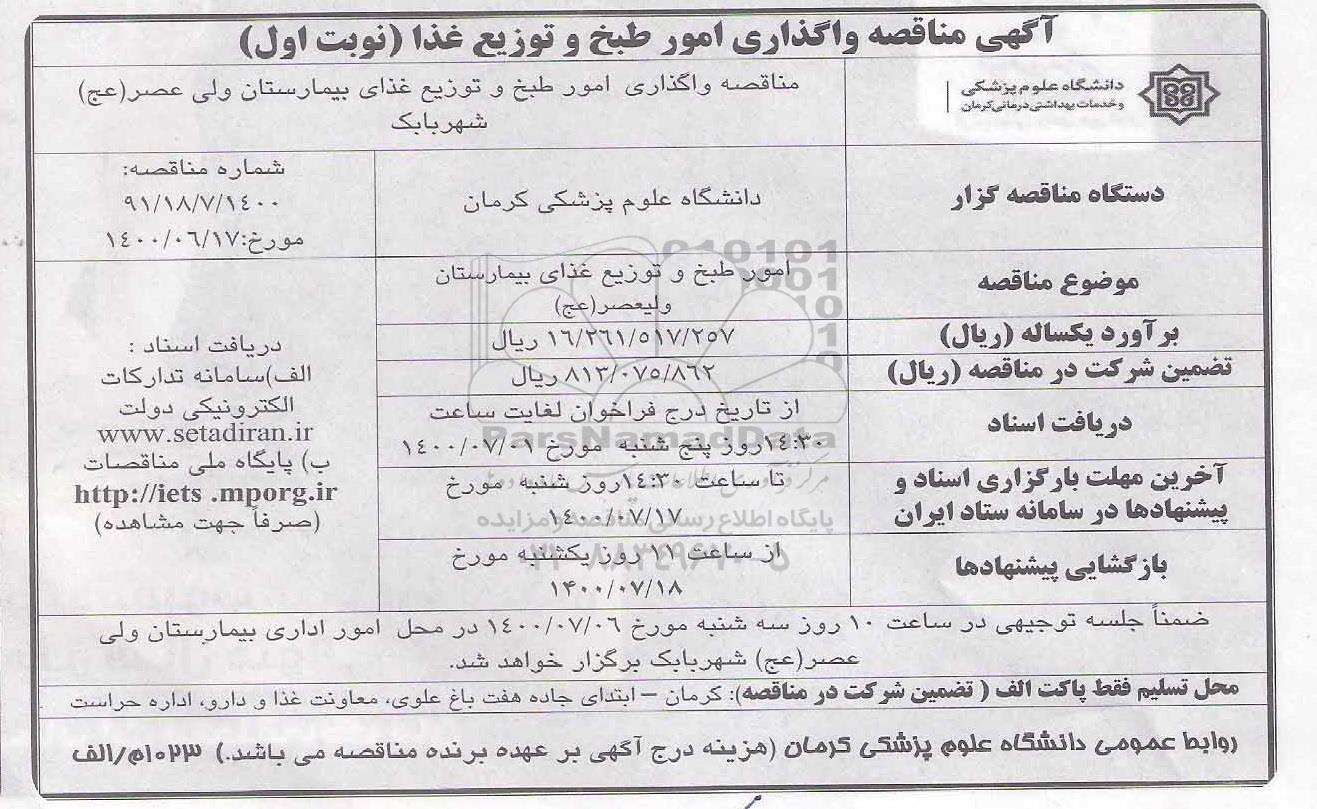 آگهی مناقصه واگذاری امور طبخ و توزیع غذا (نوبت اول)
دانشگاه علوم پزشکی
و خدمات بهداشتی درمانی کرمان
مناقصه واگذاری امور طبخ و توزیع غذای بیمارستان ولی عصر(عج)
شهربابک
دستگاه مناقصه گزار
دانشگاه علوم پزشکی کرمان
شماره مناقصه:
٩١/١٨/٧/١٤٠٠
مورخ:١٤٠٠/٠٦/١٧
موضوع مناقصه
امور طبخ و توزیع غذای بیمارستان
ولیعصر(عج)
برآورد یکساله (ریال)
١٦/٢٦١/٥١٧/٢٥٧ ریال
تضمین شرکت در مناقصه (ریال)
٨١٣/٠٧٥/٨٦٢ ریال
دریافت اسناد
از تاریخ درج فراخوان لغایت ساعت
١٤:٣٠روز پنج شنبه مورخ ١٤٠٠/٠٧/٠١
آخرین مهلت بارگزاری اسناد و
پیشنهادها در سامانه ستاد ایران
تا ساعت ١٤:٣٠روز شنبه مورخ
١٤٠٠/٠٧/١٧
بازگشایی پیشنهادها
از ساعت ١١ روز یکشنبه مورخ
١٤٠٠/٠٧/١٨
دریافت اسناد :
الف)سامانه تدارکات
الکترونیکی دولت
www.setadiran.ir
ب) پایگاه ملی مناقصات
http://iets .mporg.ir
(صرفاً جهت مشاهده)
ضمناً جلسه توجیهی در ساعت ١٠ روز سه شنبه مورخ ١٤٠٠/٠٧/٠٦ در محل امور اداری بیمارستان ولی
عصر(عج) شهربابک برگزار خواهد شد.
محل تسلیم فقط پاکت الف ( تضمین شرکت در مناقصه): کرمان – ابتدای جاده هفت باغ علوی، معاونت غذا و دارو، اداره حراست
روابط عمومی دانشگاه علوم پزشکی کرمان (هزینه درج آگهی بر عهده برنده مناقصه می باشد.) ١٠٢٣م/الف
ParsNamadData
پایگاه اطلاع رسانی مناقصه و مزایده